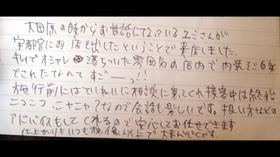 大田原の時からお世話になっているユニさんが
宇都宮にお店を出したということで来店しました。
キレイでオシャレ 落ちついた雰囲気の店内で 内装もご自身
でされたなので すごーっ!!
施行前にはていねいに相談に乗ってくれ 接客中は
こつこつ なので会話も楽しいです。扱い方などの
アドバイスもしてくれるので安心しておまかせできます
仕上がりもいつも 以上で大まんぞくです。